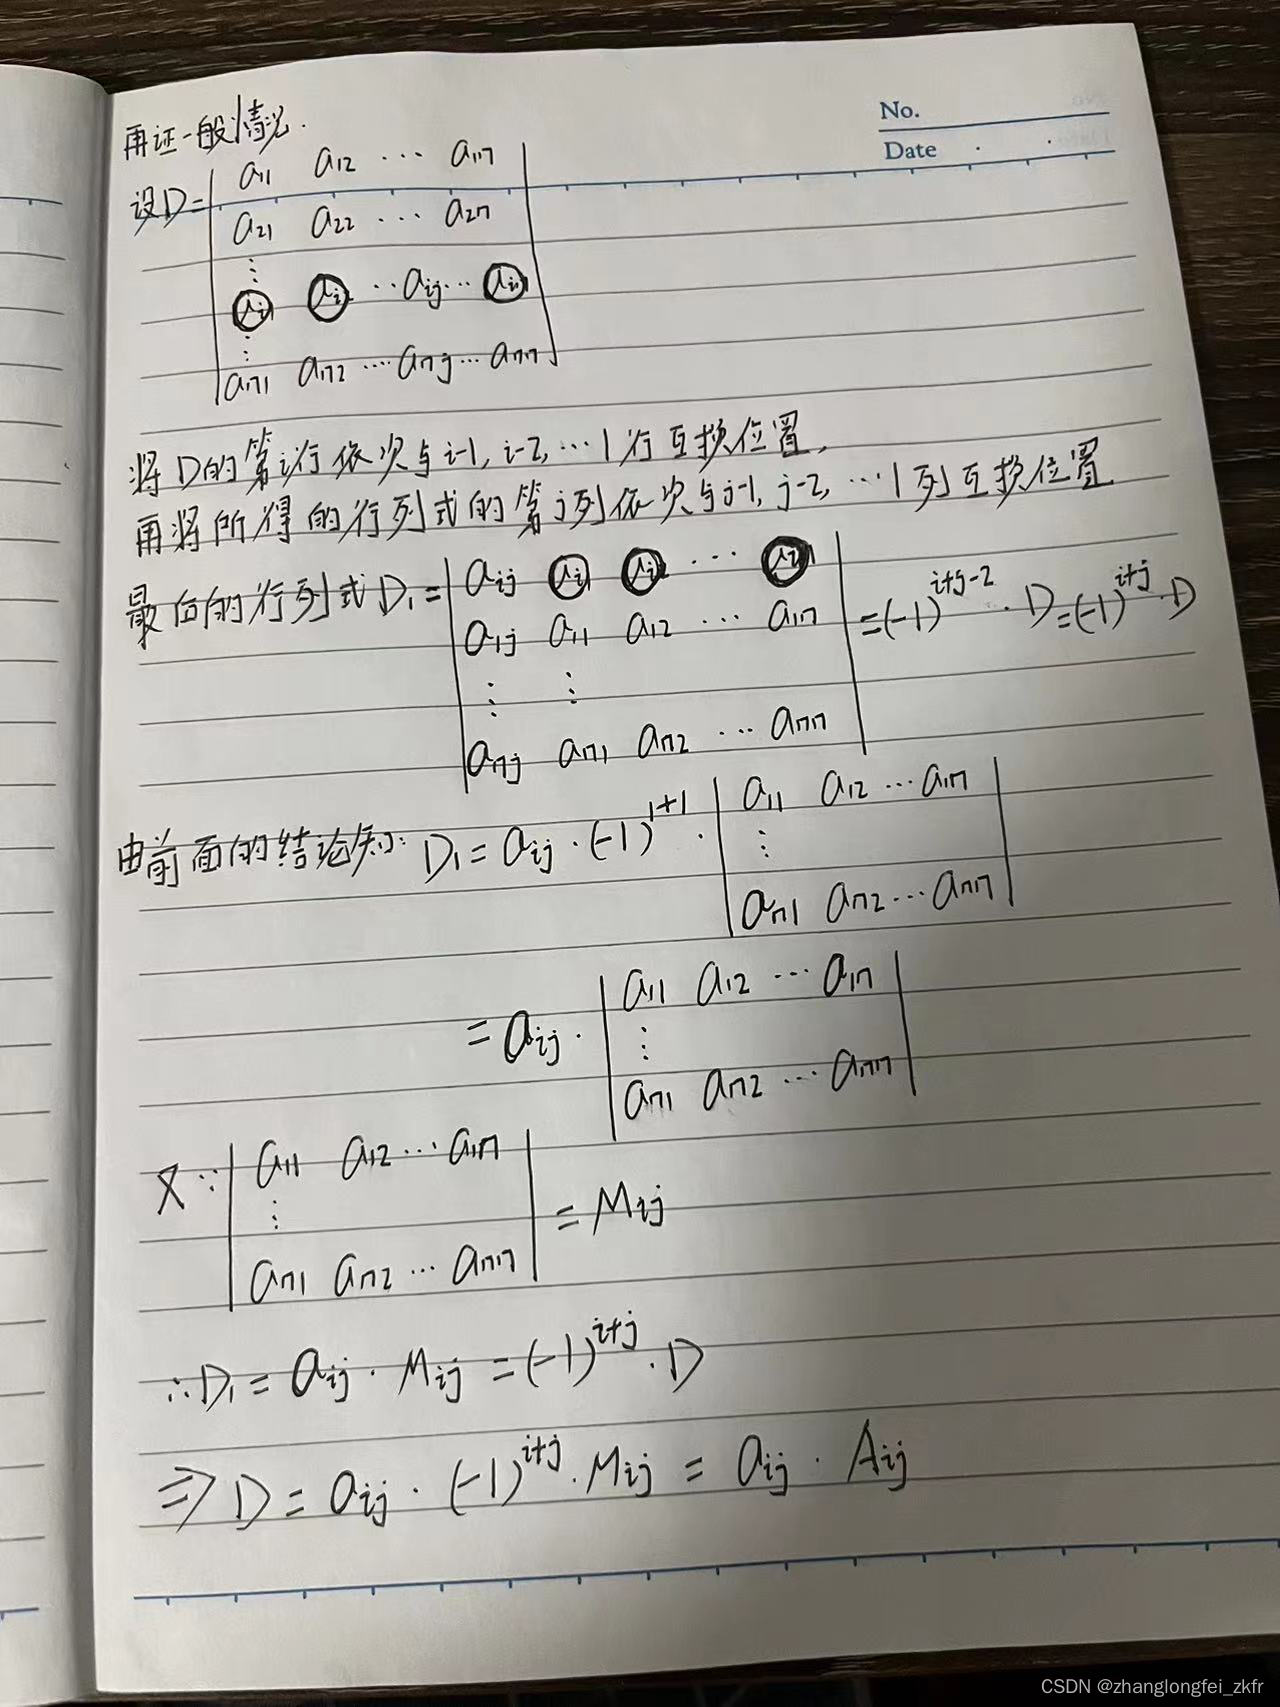 No.
Date
再证一般情况.
设D=
a11 a12 ··· a1n
a21 a22 ··· a2n
⋮
ai1 ai2 ··· aij ··· ain
⋮
an1 an2 ···· anj ··· ann
将D的第i行依次与i-1, i-2, ···1行互换位置,
再将所得的行列式的第j列依次与j-1, j-2, ···1列互换位置
最后的行列式D1=
aij ai1 ai2 ··· ain
a1j a11 a12 ··· a1n
=(-1)^{i+j-2}·D=(-1)^{i+j}·D
⋮ ⋮
anj an1 an2 ··· ann
由前面的结论知: D1=aij·(-1)^{1+1}·
a11 a12 ··· a1n
⋮
an1 an2 ··· ann
=aij·
a11 a12 ··· a1n
⋮
an1 an2 ··· ann
又∵
a11 a12 ··· a1n
⋮
an1 an2 ··· ann
=Mij
∴D1=aij·Mij=(-1)^{i+j}·D
⇒D=aij·(-1)^{i+j}·Mij=aij·Aij
CSDN @zhanglongfei_zkfr